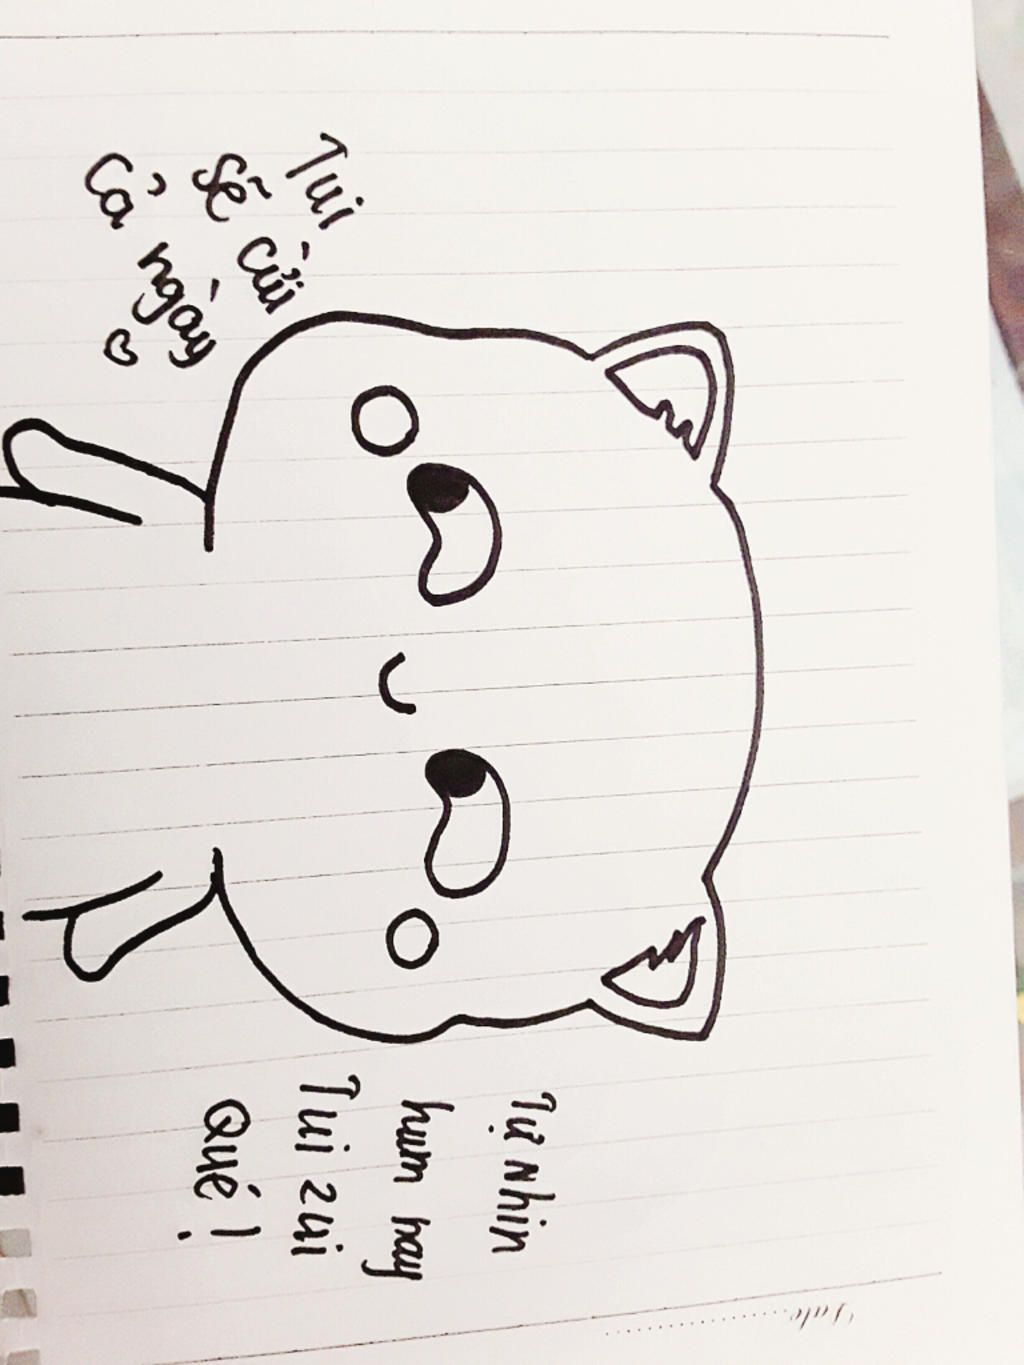 Tui
sẽ cừi
cả ngày
Tự Nhin
hum nay
Tui zui
Qué !
Date